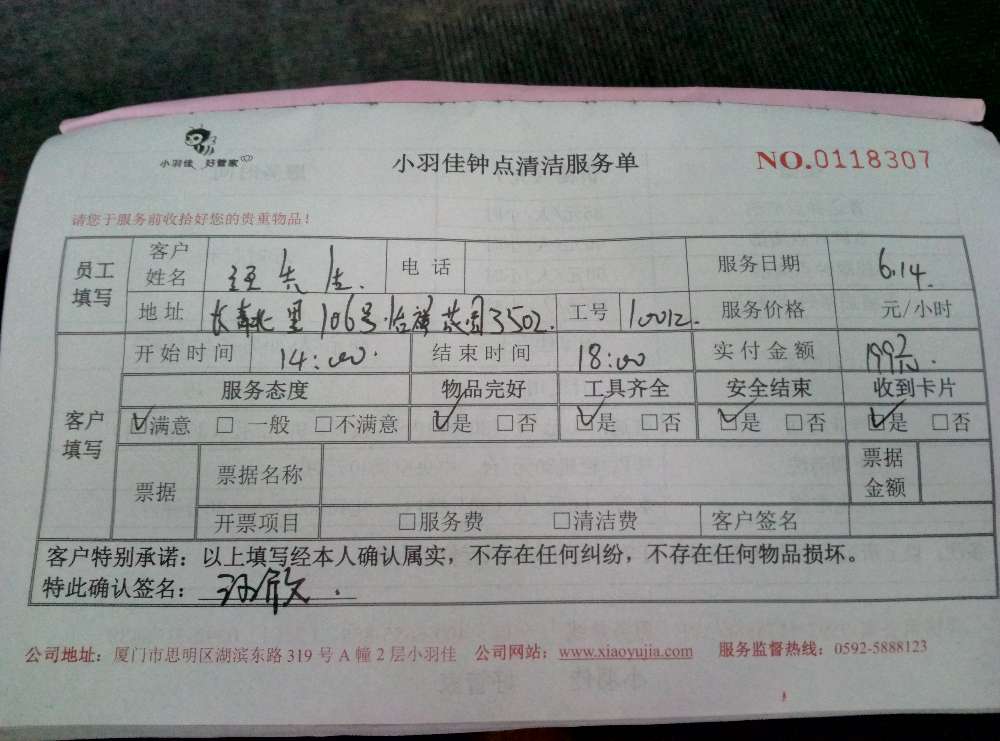 小羽佳 好管家
小羽佳钟点清洁服务单
NO.0118307
请您于服务前收拾好您的贵重物品！
员工填写 客户姓名 电话 服务日期 6.14.
地址 长青北里106号 3502. 工号 10012. 服务价格 元/小时
客户填写 开始时间 14:00. 结束时间 18:00 实付金额 199元.
服务态度 物品完好 工具齐全 安全结束 收到卡片
☑满意 □一般 □不满意 ☑是 □否 ☑是 □否 ☑是 □否 ☑是 □否
票据 票据名称 票据金额
开票项目 □服务费 □清洁费 客户签名
客户特别承诺：以上填写经本人确认属实，不存在任何纠纷，不存在任何物品损坏。
特此确认签名：
公司地址：厦门市思明区湖滨东路319号A幢2层小羽佳 公司网站：www.xiaoyujia.com 服务监督热线：0592-5888123